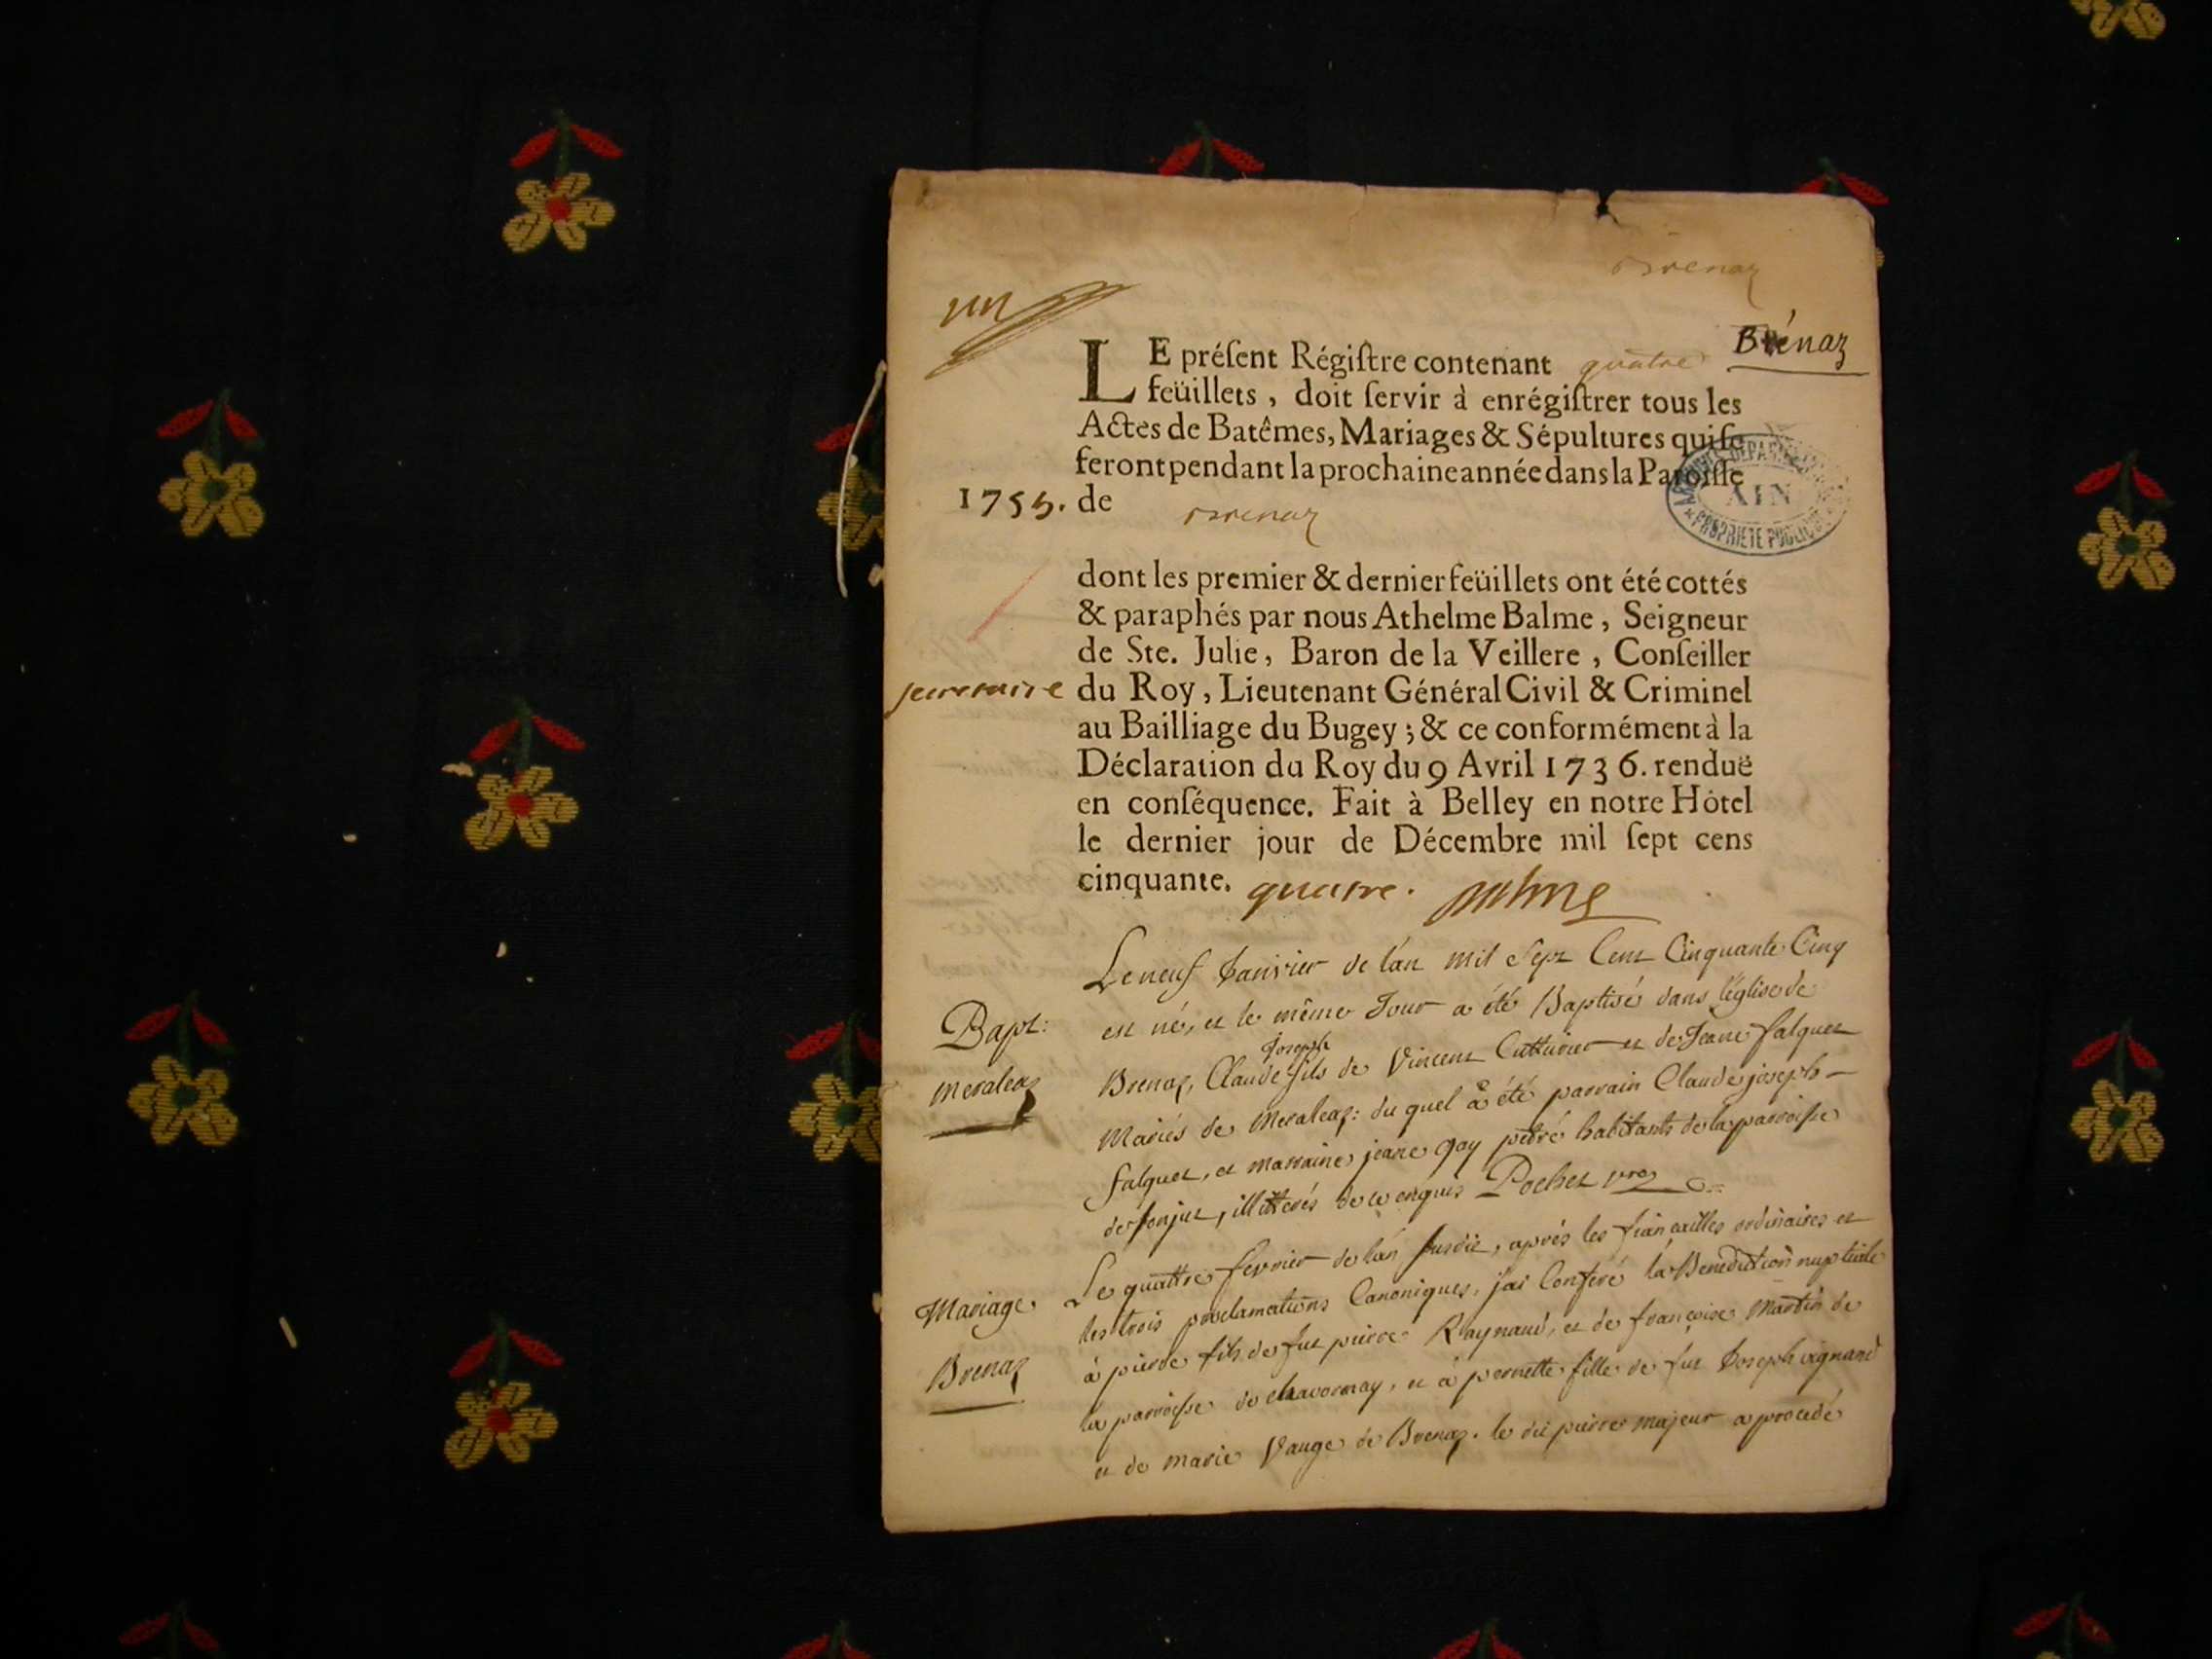 Brenaz
un
Brénaz
LE préſent Régiſtre contenant quatre
feüillets, doit ſervir à enrégiſtrer tous les
Actes de Batêmes, Mariages & Sépultures qui ſe
feront pendant la prochaine année dans la Paroiſſe
1755. de Brenaz
ARCHIVES DEPARTEMENTALES
AIN
PROPRIETE PUBLIQUE
dont les premier & dernier feüillets ont été cottés
& paraphés par nous Athelme Balme, Seigneur
de Ste. Julie, Baron de la Veillere, Conſeiller
secretaire du Roy, Lieutenant Général Civil & Criminel
au Bailliage du Bugey; & ce conformément à la
Déclaration du Roy du 9 Avril 1736. renduë
en conſéquence. Fait à Belley en notre Hôtel
le dernier jour de Décembre mil ſept cens
cinquante. quatre. Balme
Le neuf Janvier de l'an mil Sept Cent Cinquante Cinq
Bapt: est né, et le même Jour a été Baptisé dans l'église de
Joseph
meraleaz Brenaz, Claude fils de Vincent Cutturier et de Jeane falquet
Mariés de Meraleaz: du quel a été parrain Claude joseph
falquet, et marraine jeane gay habitants de la parroisse
de fonjut, illitterés de ce enquis Pochet
Le quattre fevrier de l'an susdit, aprés les fiançailles ordinaires et
Mariage les trois proclamations Canoniques, j'ai Conferé la Benediction nuptiale
à pierre fils de fut pierre Raynaud, et de françoise Martin de
Brenaz la parroisse de chavornay, et à pernette fille de fut Joseph vignand
et de marie Vauge de Brenaz. le dit pierre majeur a procedé